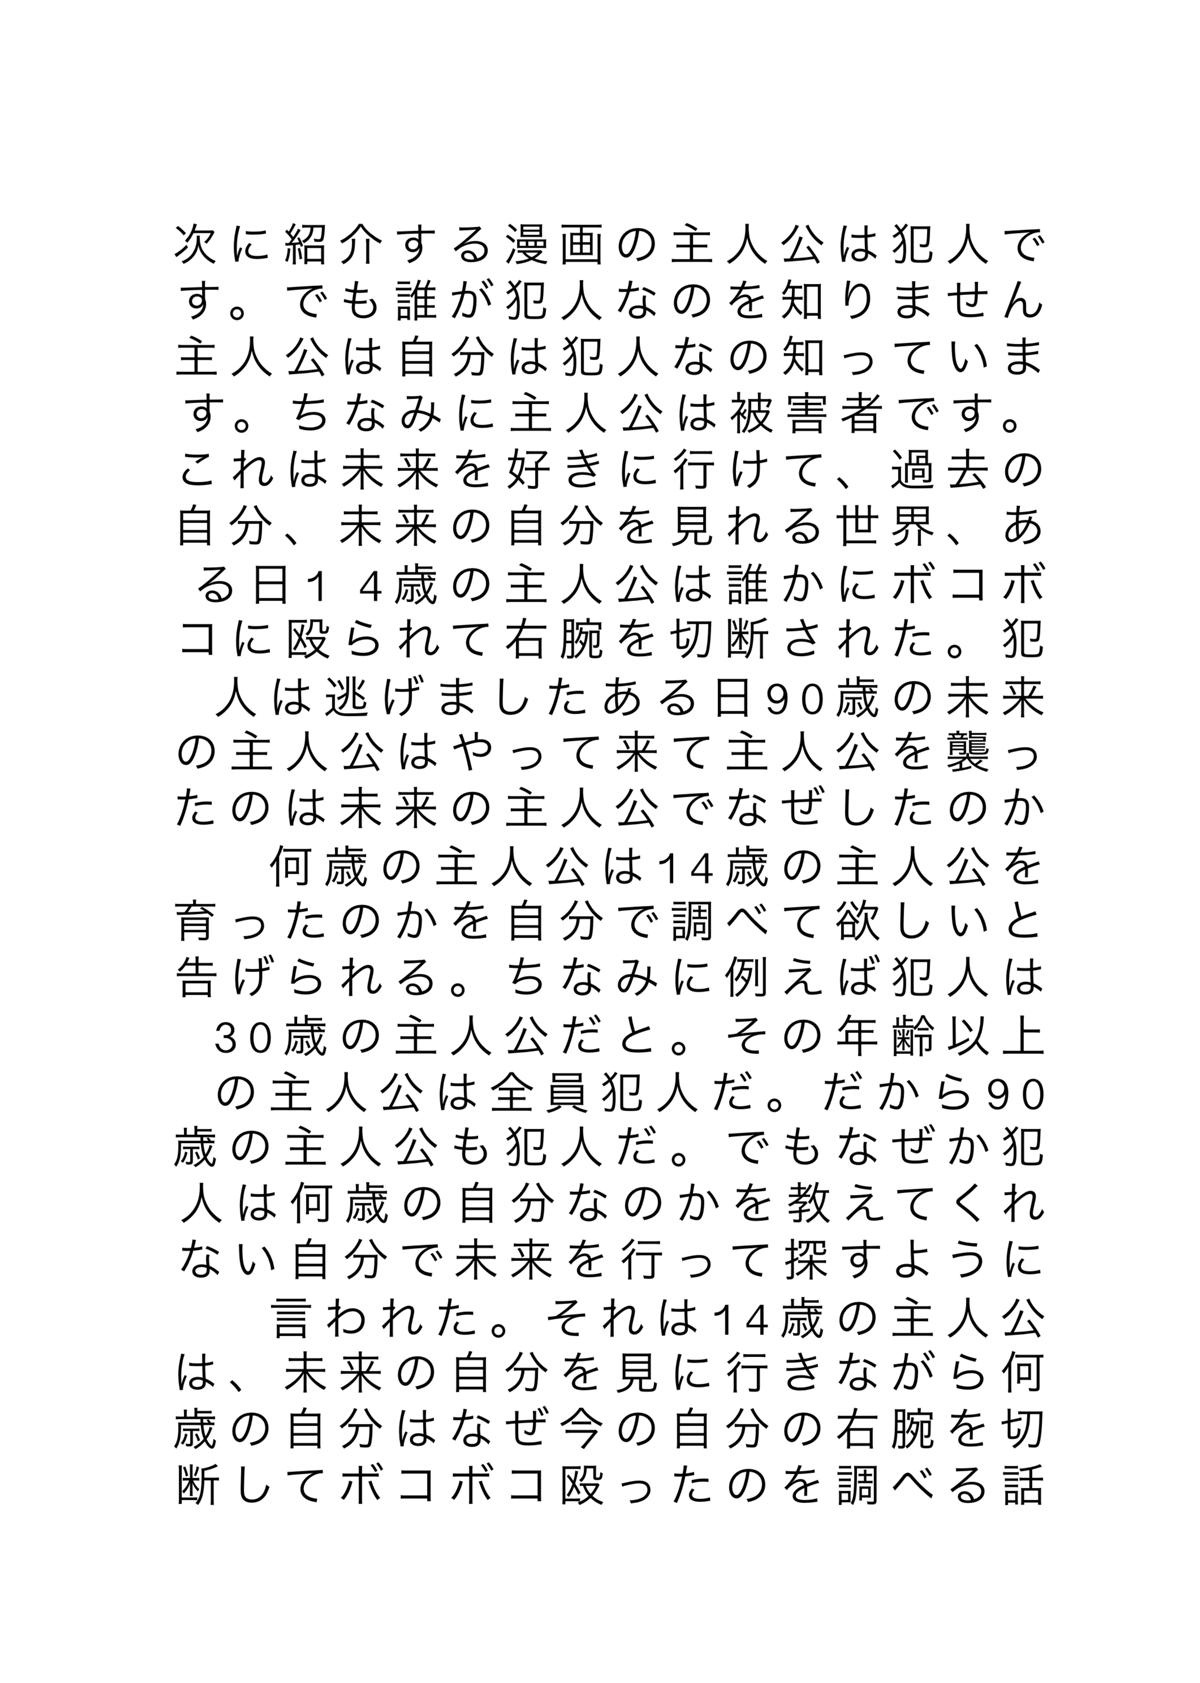 次に紹介する漫画の主人公は犯人で
す。でも誰が犯人なのを知りません
主人公は自分は犯人なの知っていま
す。ちなみに主人公は被害者です。
これは未来を好きに行けて、過去の
自分、未来の自分を見れる世界、あ
る日1 4歳の主人公は誰かにボコボ
コに殴られて右腕を切断された。犯
人は逃げましたある日90歳の未来
の主人公はやって来て主人公を襲っ
たのは未来の主人公でなぜしたのか
何歳の主人公は14歳の主人公を
育ったのかを自分で調べて欲しいと
告げられる。ちなみに例えば犯人は
30歳の主人公だと。その年齢以上
の主人公は全員犯人だ。だから90
歳の主人公も犯人だ。でもなぜか犯
人は何歳の自分なのかを教えてくれ
ない自分で未来を行って探すように
言われた。それは14歳の主人公
は、未来の自分を見に行きながら何
歳の自分はなぜ今の自分の右腕を切
断してボコボコ殴ったのを調べる話